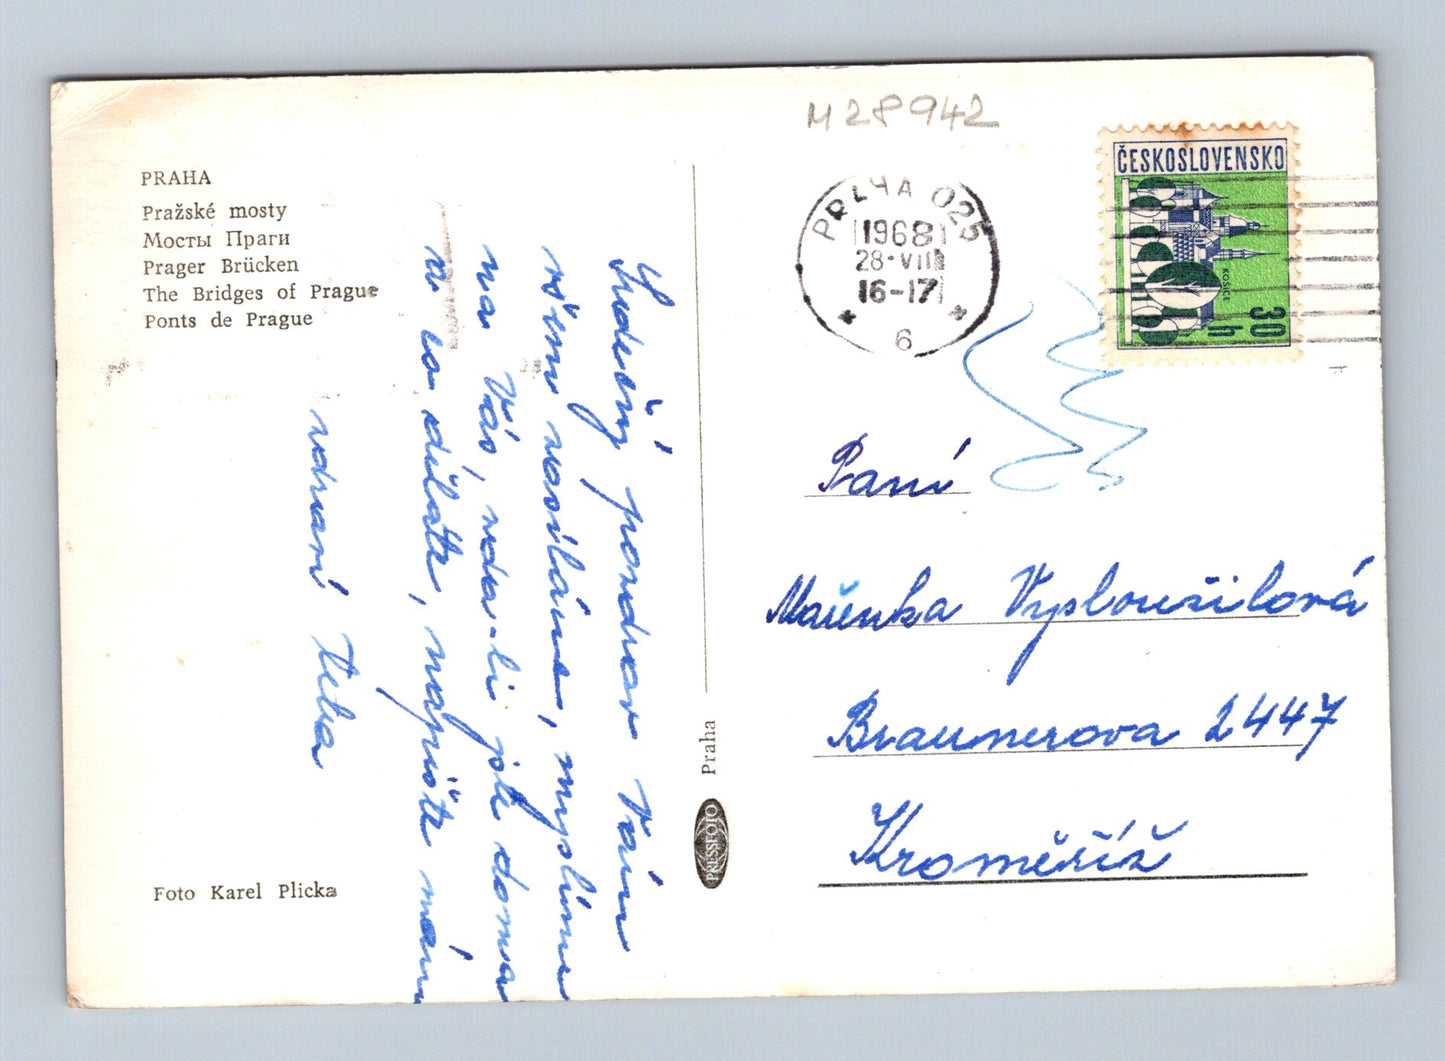 M 28942
PRAHA
Pražské mosty
Мосты Праги
Prager Brücken
The Bridges of Prague
Ponts de Prague
PRAHA 025
1968
28-VIII
16-17
6
ČESKOSLOVENSKO
KOŠICE
30 h
Srdečný pozdrav Vám
všem zasíláme, myslíme
na Vás, zda-li jste doma
a co děláte, napište nám
zdraví
Praha
PRESSFOTO
Paní
Mařenka Vysloužilová
Braunerova 2447
Kroměříž
Foto Karel Plicka